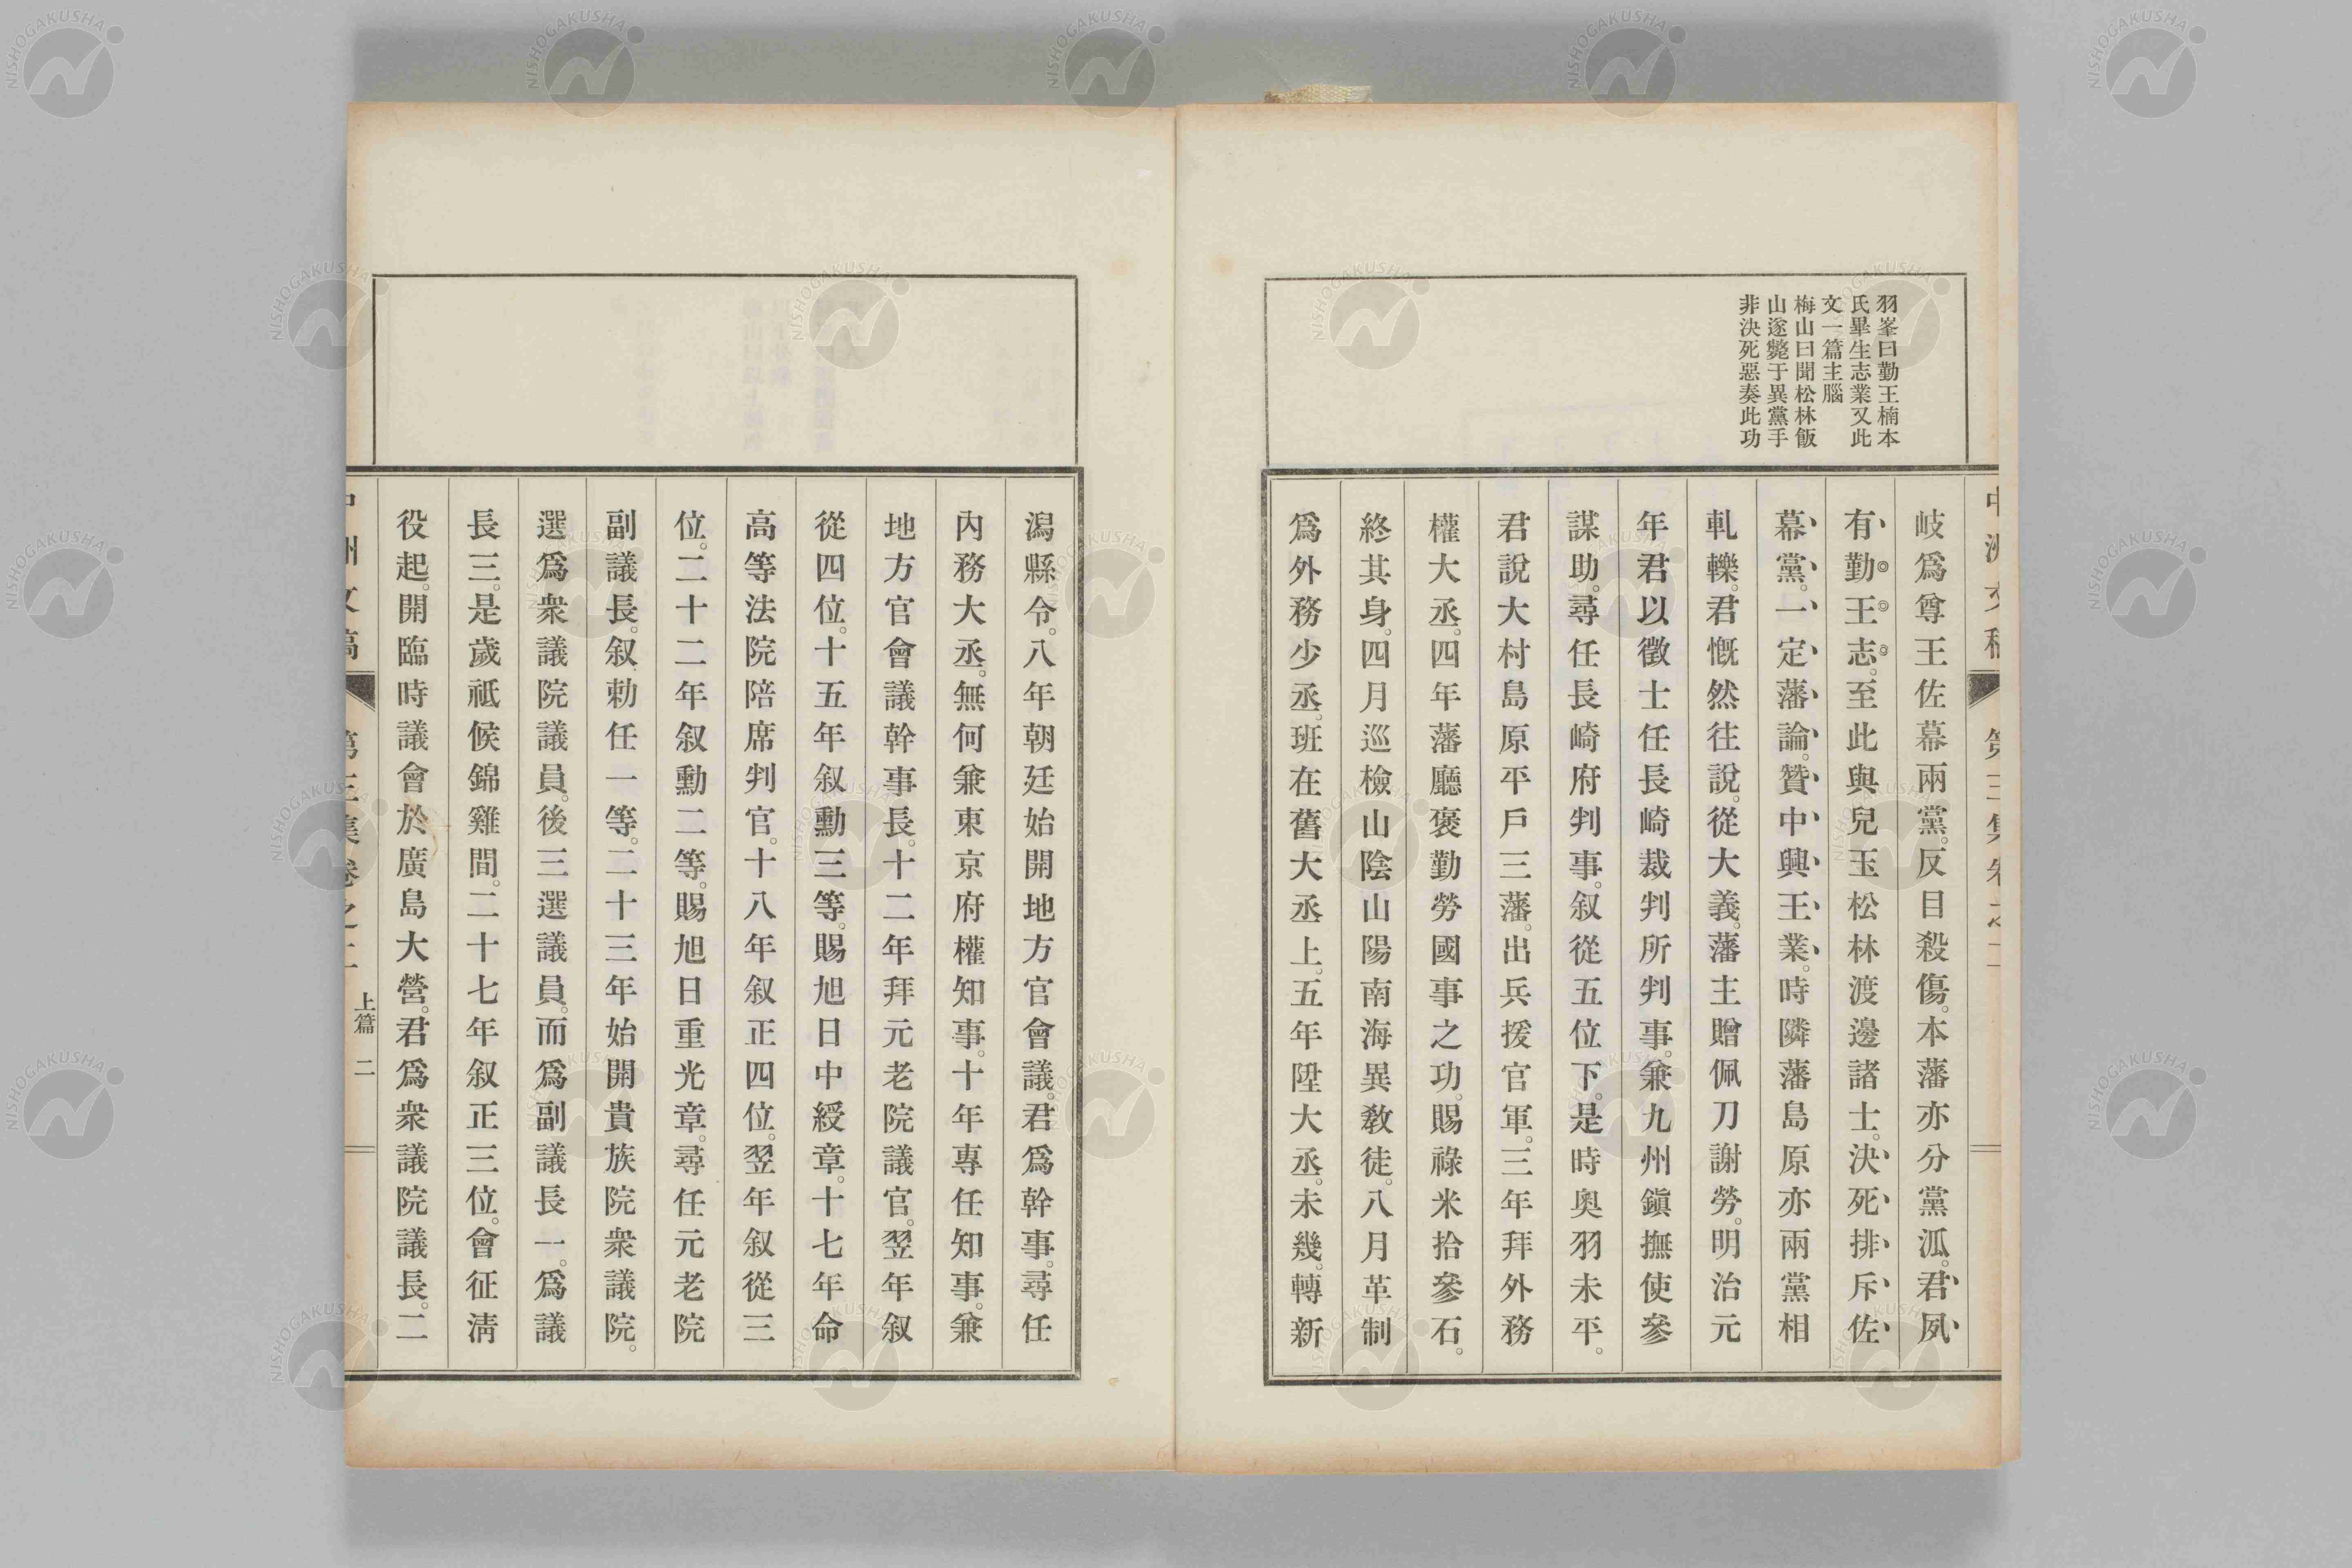 羽峯曰勤王楠本
氏畢生志業又此
文一篇主腦
梅山曰聞松林飯
山遂斃于異黨手
非決死惡奏此功
岐爲尊王佐幕兩黨。反目殺傷。本藩亦分黨派。君夙
有勤王志。至此與兒玉松林渡邊諸士。決死排斥佐
幕黨。一定藩論。贊中興王業。時隣藩島原亦兩黨相
軋轢。君慨然往說。從大義。藩主贈佩刀謝勞。明治元
年君以徵士任長崎裁判所判事。兼九州鎭撫使參
謀助。尋任長崎府判事。叙從五位下。是時奧羽未平。
君說大村島原平戶三藩。出兵援官軍。三年拜外務
權大丞。四年藩廳褒勤勞國事之功。賜祿米拾參石。
終其身。四月巡檢山陰山陽南海異教徒。八月革制
爲外務少丞。班在舊大丞上。五年陞大丞。未幾。轉新
潟縣令。八年朝廷始開地方官會議。君爲幹事。尋任
內務大丞。無何兼東京府權知事。十年專任知事。兼
地方官會議幹事長。十二年拜元老院議官。翌年叙
從四位。十五年叙勳三等。賜旭日中綬章。十七年命
高等法院陪席判官。十八年叙正四位。翌年叙從三
位。二十二年叙勳二等。賜旭日重光章。尋任元老院
副議長。叙勅任一等。二十三年始開貴族院衆議院。
選爲衆議院議員。後三選議員。而爲副議長一。爲議
長三。是歲祗候錦雞間。二十七年叙正三位。會征淸
役起。開臨時議會於廣島大營。君爲衆議院議長。二
上篇 二